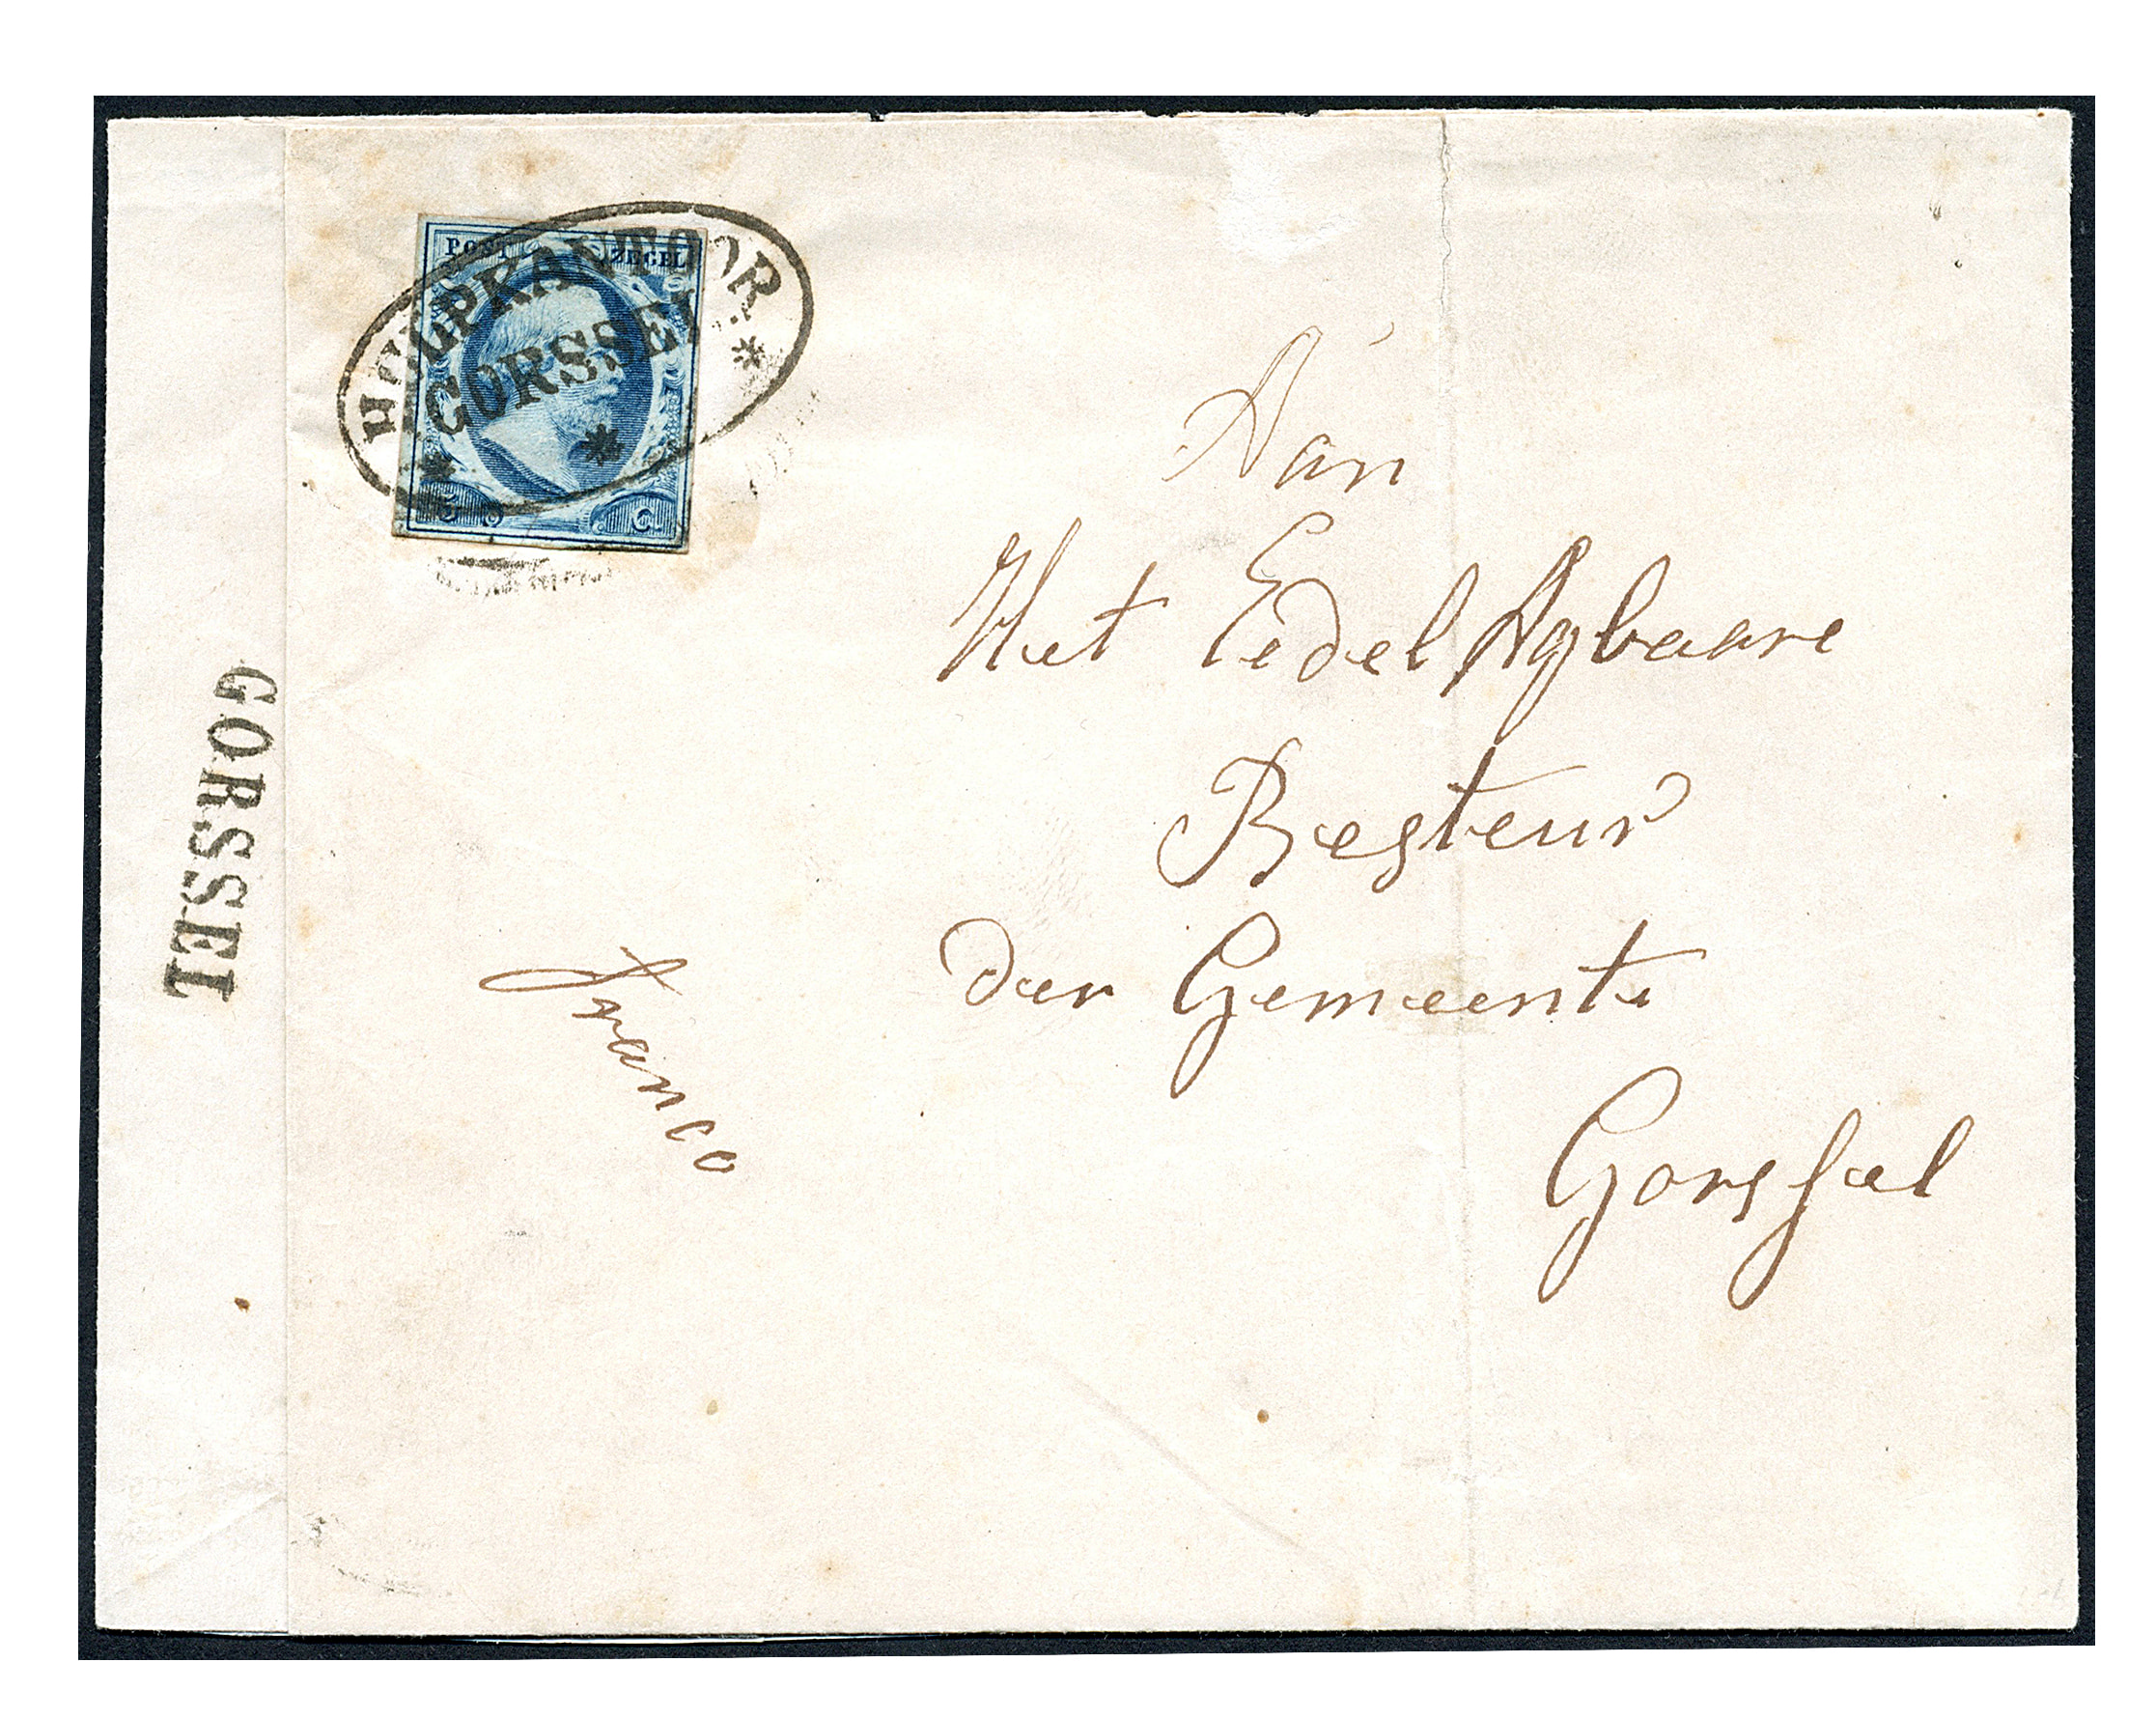 POST ZEGEL
HULPKANTOOR
GORSSEL
5 C.
GORSSEL
Aan
Het Eedel Agbaare
Besteur
der Gemeente
Gorssel
Franco